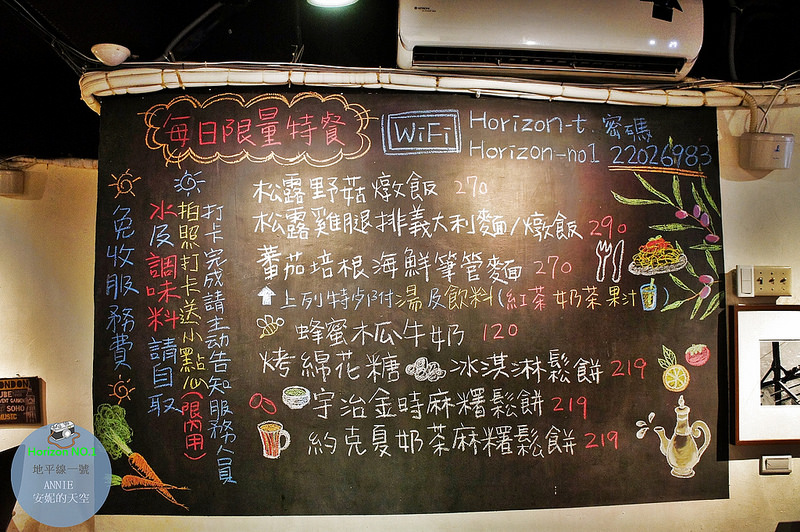 每日限量特餐
WiFi
Horizon-t. 密碼
Horizon-no1 22026983
松露野菇燉飯 270
松露雞腿排義大利麵/燉飯 290
蕃茄培根海鮮筆管麵 270
上列特餐附湯及飲料(紅茶 奶茶 果汁)
蜂蜜木瓜牛奶 120
烤綿花糖 冰淇淋鬆餅 219
宇治金時麻糬鬆餅 219
約克夏奶茶麻糬鬆餅 219
打卡完成請主動告知服務人員
拍照打卡送小點心(限內用)
水及調味料請自取
免收服務費
LONDON
SOHO
MUSIC
Horizon NO.1
地平線一號
ANNIE
安妮的天空